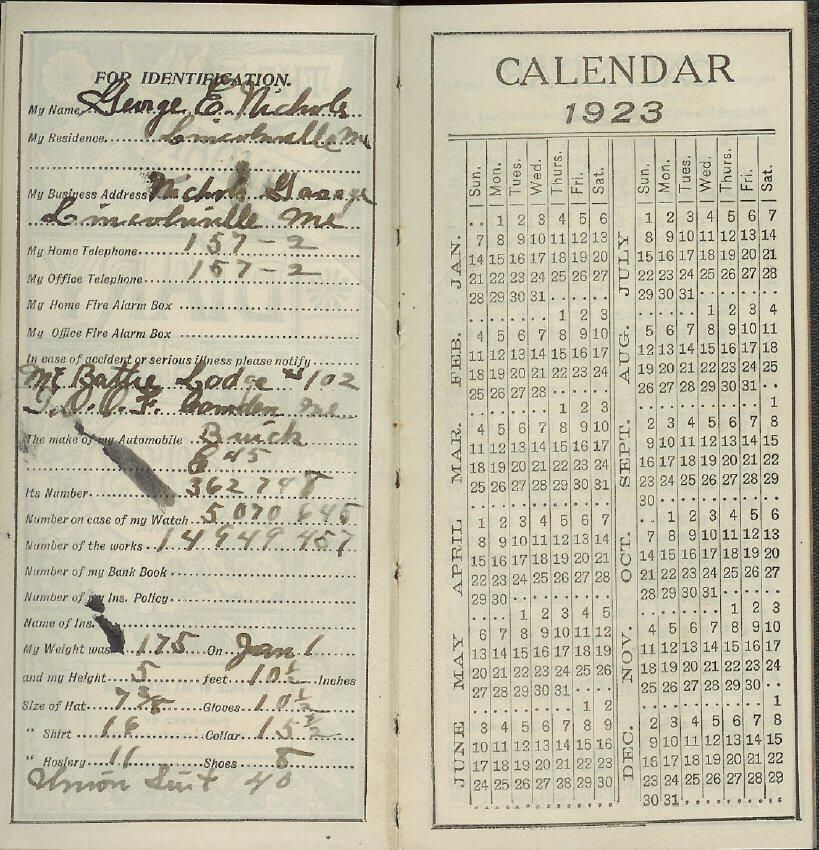 FOR IDENTIFICATION.
My Name George E. Nichols
My Residence Lincolnville Me
My Business Address Nichols Garage
Lincolnville Me
My Home Telephone 157-2
My Office Telephone 157-2
My Home Fire Alarm Box
My Office Fire Alarm Box
In case of accident or serious illness please notify
Mt Battie Lodge # 102
I.O.O.F. Camden Me
The make of my Automobile Buick
E 45
Its Number 362748
Number on case of my Watch 5070645
Number of the works 14949457
Number of my Bank Book
Number of my Ins. Policy
Name of Ins.
My Weight was 175 On Jan 1
and my Height 5 feet 10 1/2 Inches
Size of Hat 7 3/8 Gloves 10 1/2
" Shirt 16 Collar 15 1/2
" Hosiery 11 Shoes 8
Union Suit 40
CALENDAR
1923
Sun. Mon. Tues. Wed. Thurs. Fri. Sat.
JAN.
1 2 3 4 5 6
7 8 9 10 11 12 13
14 15 16 17 18 19 20
21 22 23 24 25 26 27
28 29 30 31
FEB.
1 2 3
4 5 6 7 8 9 10
11 12 13 14 15 16 17
18 19 20 21 22 23 24
25 26 27 28
MAR.
1 2 3
4 5 6 7 8 9 10
11 12 13 14 15 16 17
18 19 20 21 22 23 24
25 26 27 28 29 30 31
APRIL
1 2 3 4 5 6 7
8 9 10 11 12 13 14
15 16 17 18 19 20 21
22 23 24 25 26 27 28
29 30
MAY
1 2 3 4 5
6 7 8 9 10 11 12
13 14 15 16 17 18 19
20 21 22 23 24 25 26
27 28 29 30 31
JUNE
1 2
3 4 5 6 7 8 9
10 11 12 13 14 15 16
17 18 19 20 21 22 23
24 25 26 27 28 29 30
Sun. Mon. Tues. Wed. Thurs. Fri. Sat.
JULY
1 2 3 4 5 6 7
8 9 10 11 12 13 14
15 16 17 18 19 20 21
22 23 24 25 26 27 28
29 30 31
AUG.
1 2 3 4
5 6 7 8 9 10 11
12 13 14 15 16 17 18
19 20 21 22 23 24 25
26 27 28 29 30 31
SEPT.
1
2 3 4 5 6 7 8
9 10 11 12 13 14 15
16 17 18 19 20 21 22
23 24 25 26 27 28 29
30
OCT.
1 2 3 4 5 6
7 8 9 10 11 12 13
14 15 16 17 18 19 20
21 22 23 24 25 26 27
28 29 30 31
NOV.
1 2 3
4 5 6 7 8 9 10
11 12 13 14 15 16 17
18 19 20 21 22 23 24
25 26 27 28 29 30
DEC.
1
2 3 4 5 6 7 8
9 10 11 12 13 14 15
16 17 18 19 20 21 22
23 24 25 26 27 28 29
30 31